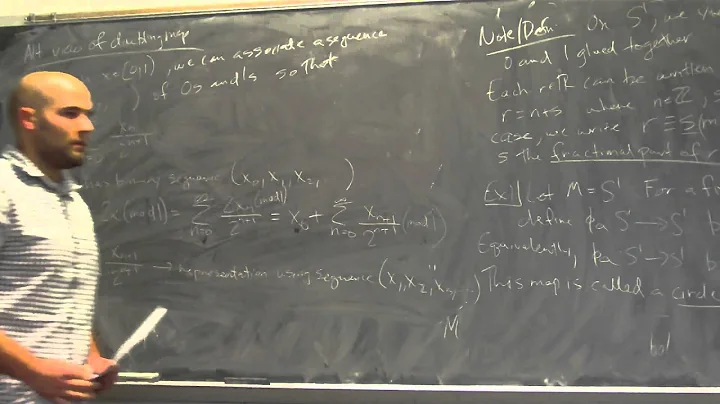 Alt view of doubling map
x ∈ [0,1), we can associate a sequence
) of 0s and 1s so that
x_n
2^{n+1}
has binary sequence (x_0, x_1, x_2, )
2x (mod 1) = ∑_{n=0}^{∞} 2x_n (mod 1) / 2^{n+1} = x_0 + ∑_{n=0}^{∞} x_{n+1} / 2^{n+1} (mod 1)
x_{n+1} / 2^{n+1} → representation using sequence (x_1, x_2, x_3, ...)
M
Note/Defn On S^1, we
0 and 1 glued together
Each r ∈ ℝ can be written
r = n + s where n ∈ ℤ, s
case, we write r ≡ s (m
s the fractional part of r
Ex) Let M = S^1 For a f
define ρ_a S^1 → S^1 b
Equivalently, ρ_a S^1 → S^1 b
This map is called a circle